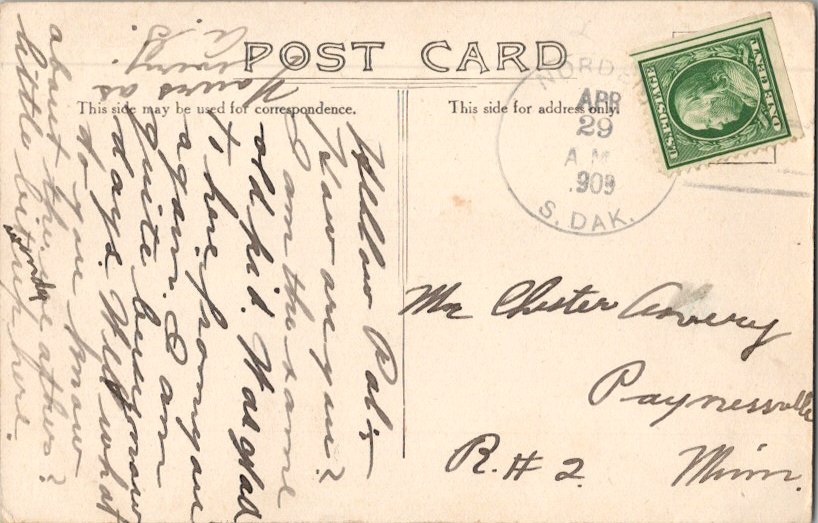 POST CARD
This side may be used for correspondence.
This side for address only.
NORDEN
APR
29
A.M.
1909
S. DAK.
U.S. POSTAGE
ONE CENT
Mr Chester Avery
Paynesville
R. # 2. Minn.
Hellow Pal:-
How are you?
I am the same
old kid. Was glad
to here from you
again. I am
quite busy now
days. Well what
do you know
about this weather?
little bit windy up here.
Yours as
every.
A. G.